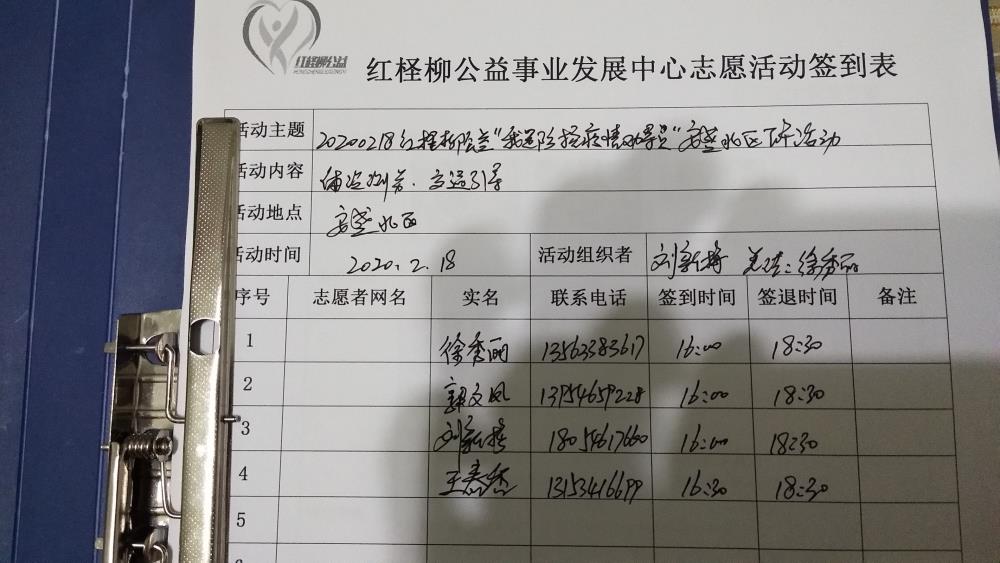 红柽柳公益
红柽柳公益事业发展中心志愿活动签到表
活动主题 20200218红柽柳公益"我是防控疫情动员员"安盛北区 活动
活动内容 交通引导
活动地点 安盛北区
活动时间 2020.2.18 活动组织者 刘新 徐秀丽
序号 志愿者网名 实名 联系电话 签到时间 签退时间 备注
1 徐秀丽 13563383617 16:00 18:30
2 郭文凤 13954659228 16:00 18:30
3 刘新 18054617660 16:00 18:30
4 王 13153416699 16:30 18:30
5